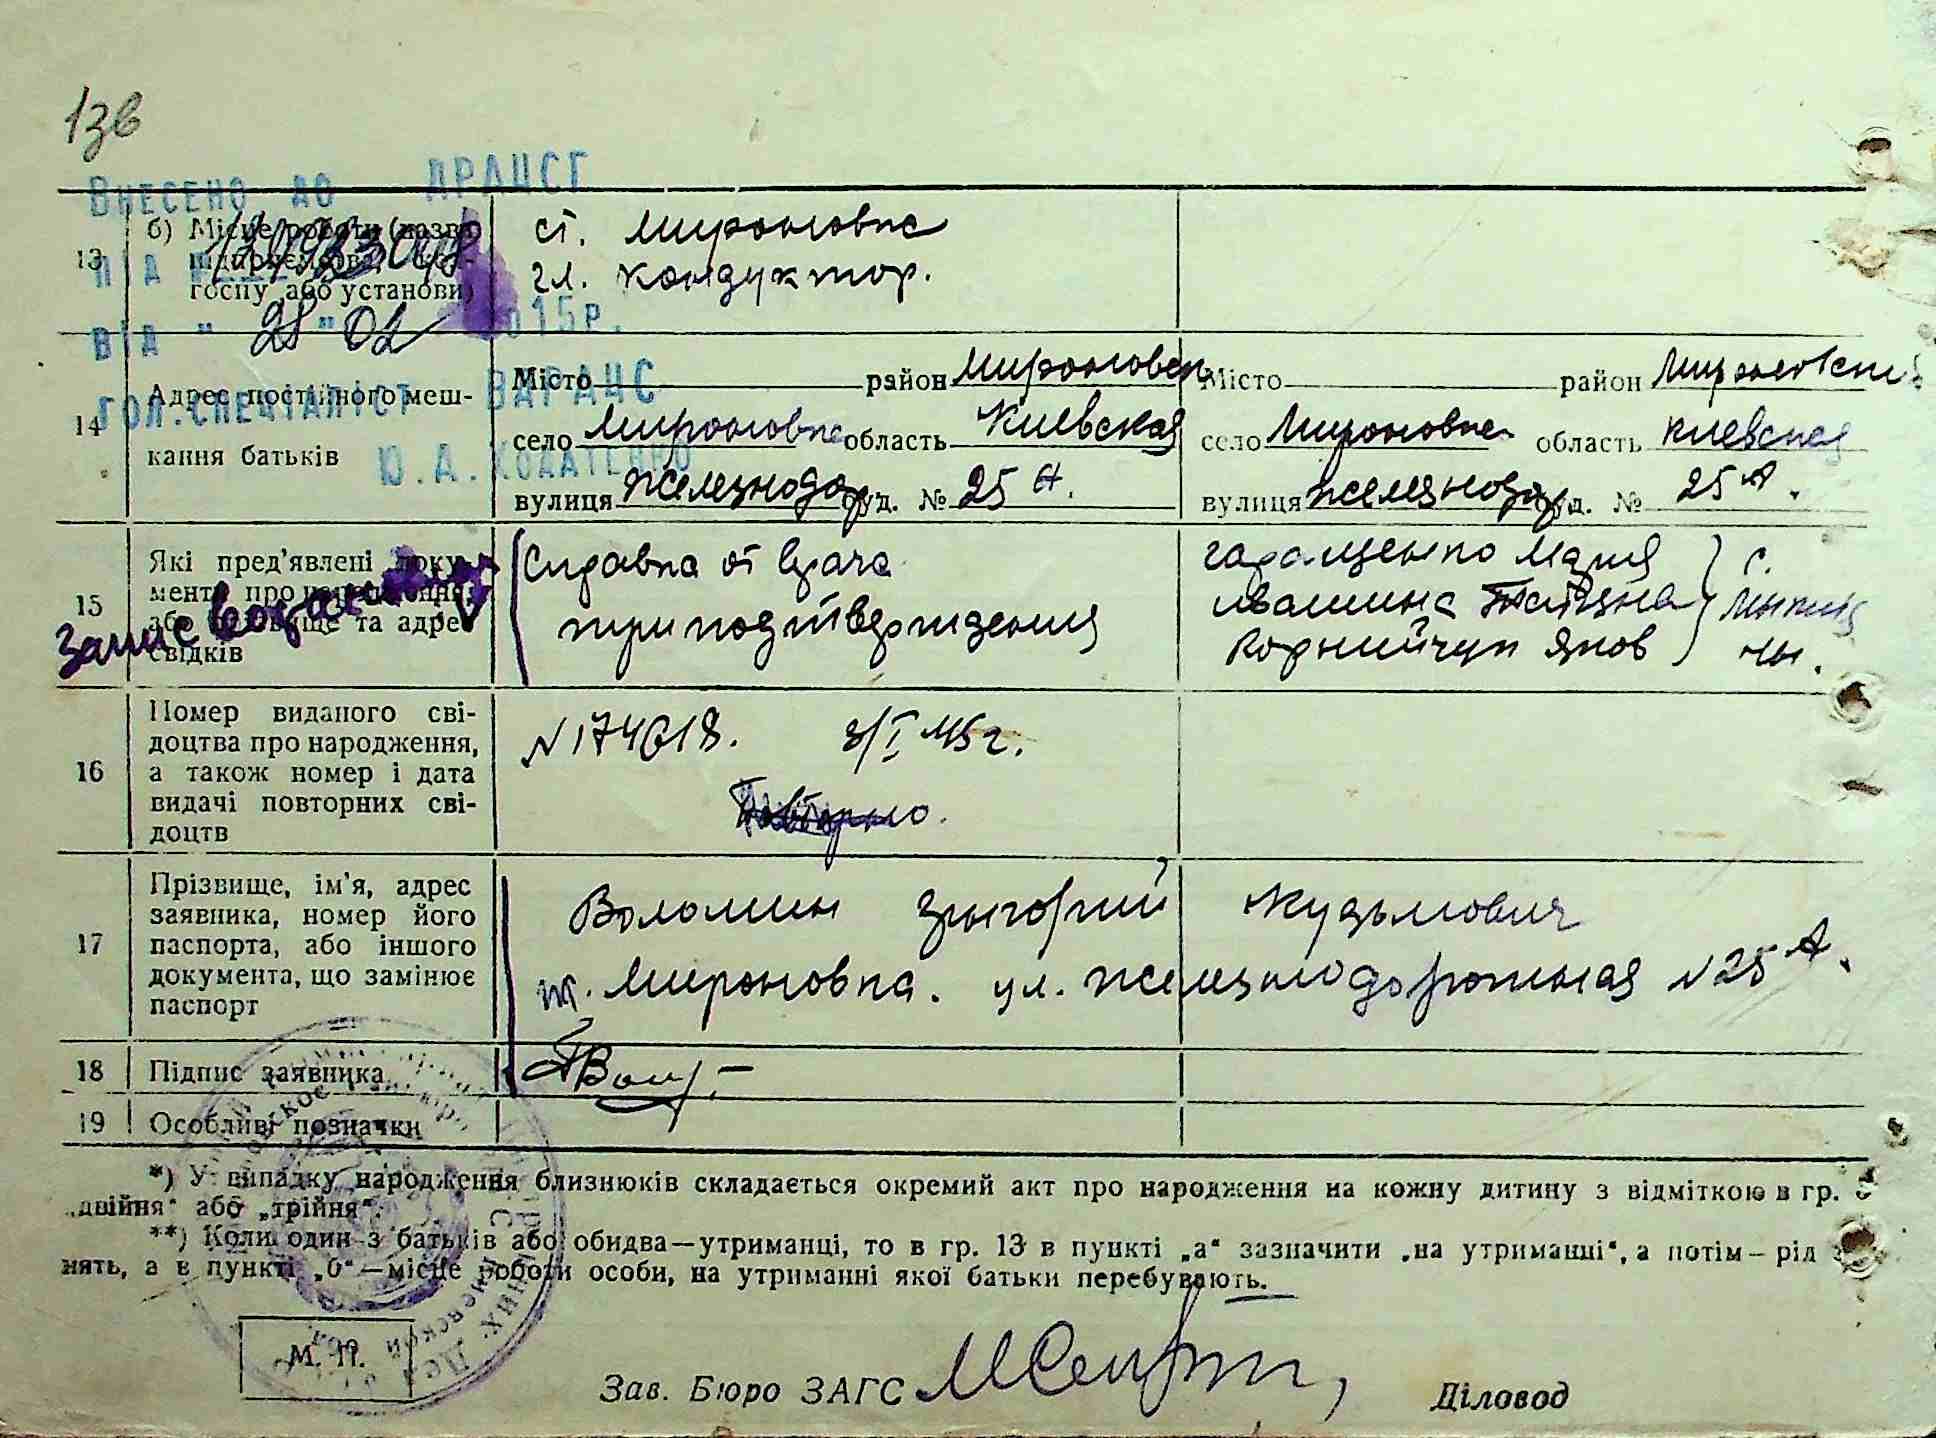 13в
Внесено до ДРАЦСГ
від "28" 02 2015р.
гол.спеціаліст ВДРАЦС
13 б) Місце роботи (назва підприємства, кол-
госпу або установи)
ст. Мироновка
гл. кондуктор.
14 Адрес постійного меш-
кання батьків
Місто район Мироновск
село Мироновка область Киевская
вулиця железнодор буд. № 25 А.
Місто район Мироновский
село Мироновка область Киевская
вулиця железнодор буд. № 25 А.
15 Які пред'явлені доку-
менти про народження,
або прізвище та адрес
свідків
Запис
Справка от врача
при подтверждения
Гаращенко Мария
Ивашина Татьяна
Корнийчук Яков
с.
16 Номер виданого сві-
доцтва про народження,
а також номер і дата
видачі повторних сві-
доцтв
N 174618. 3/I 45 г.
Повторно.
17 Прізвище, ім'я, адрес
заявника, номер його
паспорта, або іншого
документа, що замінює
паспорт
Волошин Григорий Кузьмович
м. Мироновка. ул. железнодорожная N 25 А.
18 Підпис заявника
19 Особливі позначки
*) У випадку народження близнюків складається окремий акт про народження на кожну дитину з відміткою в гр.
„двійня“ або „трійня“.
**) Коли один з батьків або обидва—утриманці, то в гр. 13 в пункті „а“ зазначити „на утриманні“, а потім — рід
нять, а в пункті „б“—місце роботи особи, на утриманні якої батьки перебувають.
М. П.
Зав. Бюро ЗАГС
Діловод